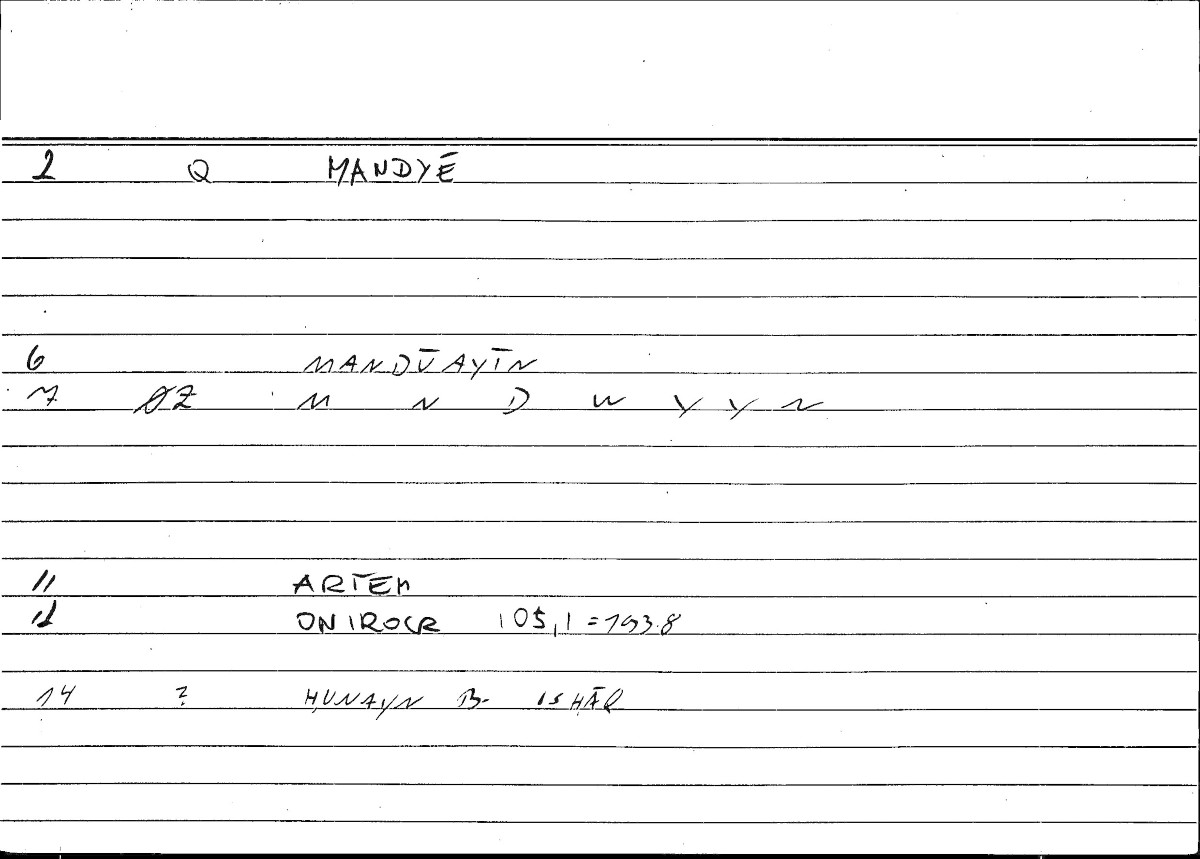 2 Q MANDYĒ
6 MANDŪAYĪN
7 ØZ M N D W Y Y N
11 ARTEM
12 ONIROCR 105,1 = 193.8
14 ? ḤUNAYN B. ISḤĀQ